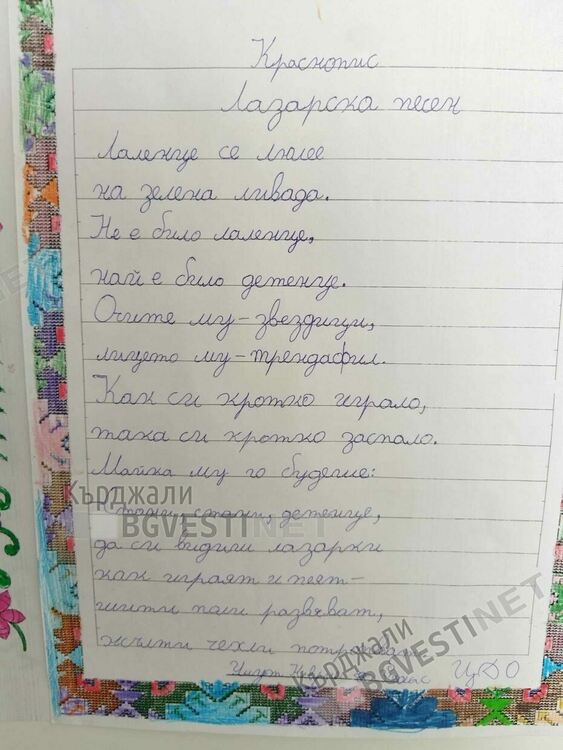 Краснопис
Лазарска песен
Лаленце се люлее
на зелена ливада.
Не е било лаленце,
най е било детенце.
Очите му - звездици,
лицето му - трендафил.
Как си кротко играло,
така си кротко заспало.
Майка му го будеше:
Стани, стани, детенце,
да си видиш лазарки
как играят и пеят -
шити поли развяват,
жълти чехли
ЦДО
Кърджали
BGVESTINET
Кърджали
BGVESTINET